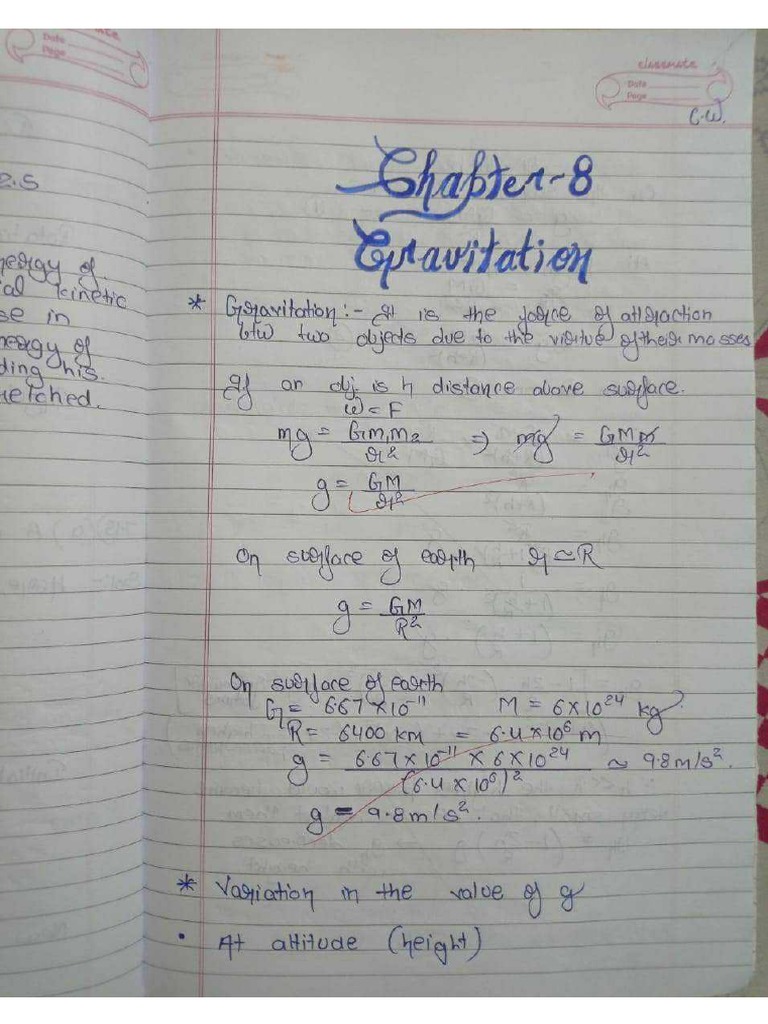 Date
Page
classmate
Date
Page
C.W.
2.5
energy of
ial kinetic
se in
energy of
ding his
retched.
Chapter-8
Gravitation
* Gravitation :- It is the force of attraction
b/w two objects due to the virtue of their masses
If an obj is h distance above surface.
W = F
mg = GM₁M₂/r² => mg = GMm/r²
g = GM/r²
On surface of earth r ≃ R
g = GM/R²
On surface of earth
G = 6.67 × 10⁻¹¹ M = 6 × 10²⁴ kg
R = 6400 km = 6.4 × 10⁶ m
g = 6.67 × 10⁻¹¹ × 6 × 10²⁴/(6.4 × 10⁶)² ≈ 9.8 m/s².
g = 9.8 m/s².
* Variation in the value of g
• At altitude (height)